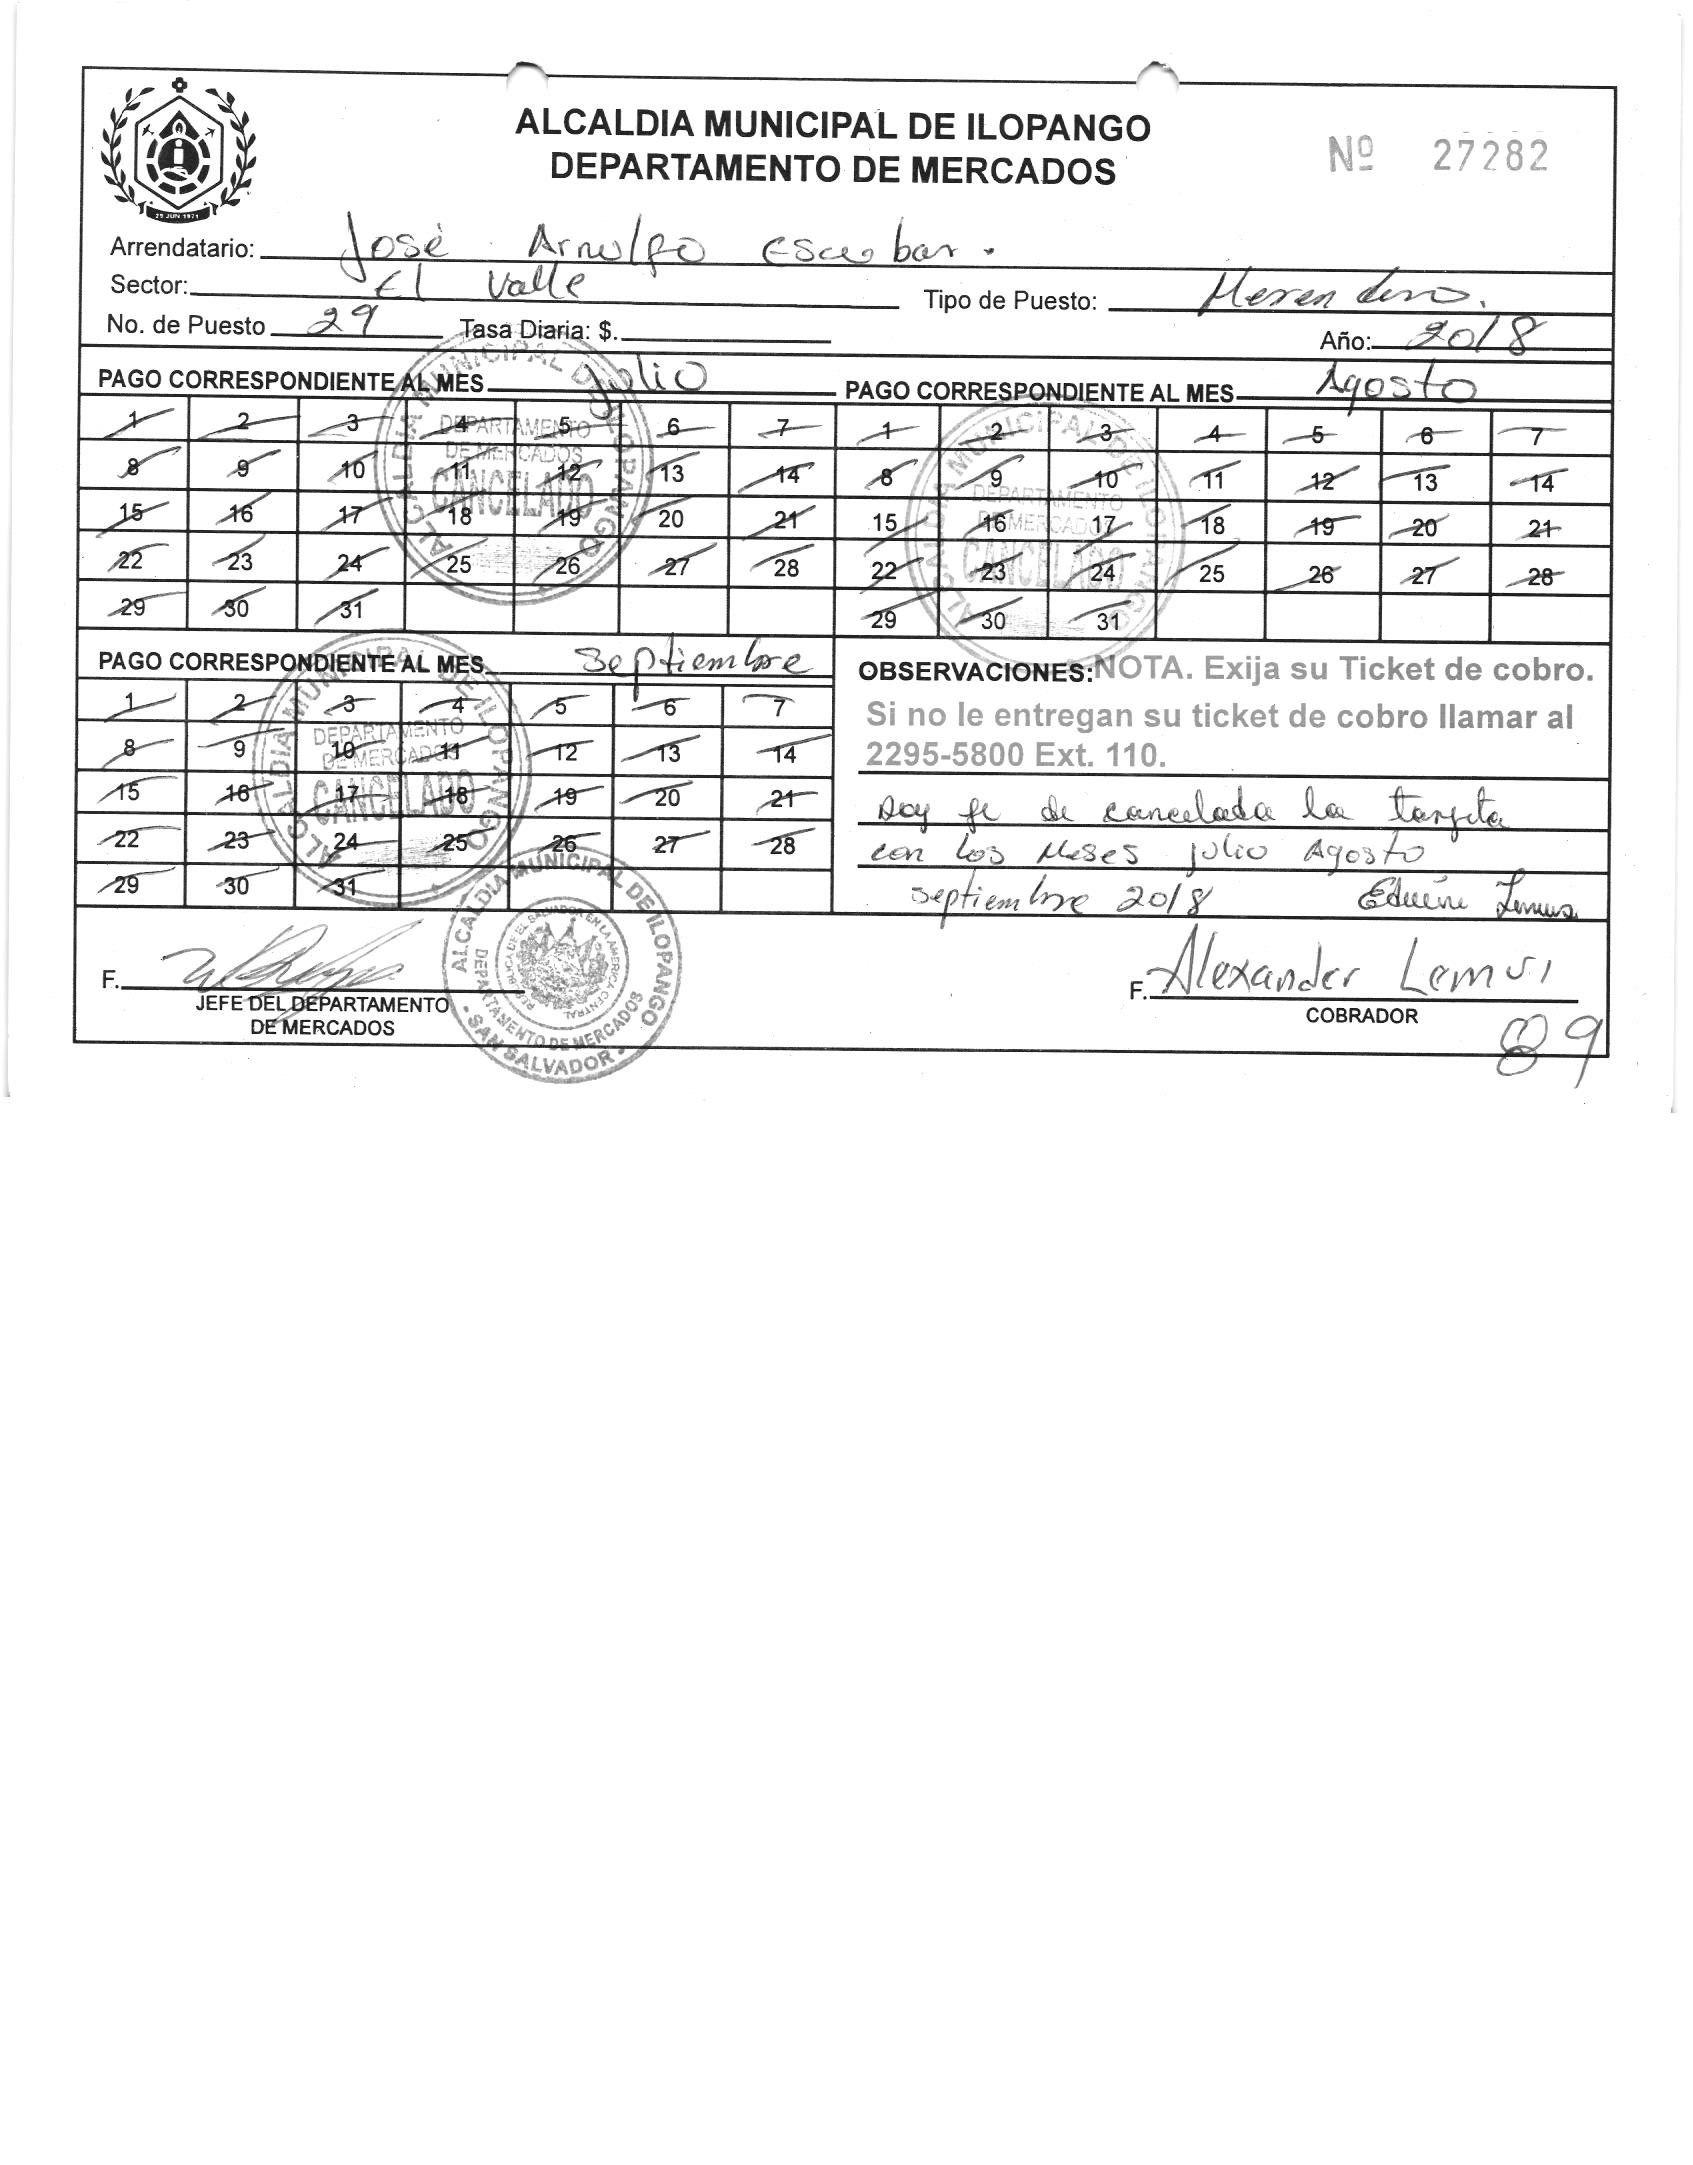 ALCALDIA MUNICIPAL DE ILOPANGO
DEPARTAMENTO DE MERCADOS
Nº 27282
29 JUN 1971
Arrendatario: José Arnulfo Escobar.
Sector: El Valle
Tipo de Puesto: Merendero.
No. de Puesto 29 Tasa Diaria: $.
Año: 2018
PAGO CORRESPONDIENTE AL MES Julio
1 2 3 4 5 6 7
8 9 10 11 12 13 14
15 16 17 18 19 20 21
22 23 24 25 26 27 28
29 30 31
ALCALDIA MUNICIPAL DE ILOPANGO
DEPARTAMENTO
DE MERCADOS
CANCELADO
PAGO CORRESPONDIENTE AL MES Agosto
1 2 3 4 5 6 7
8 9 10 11 12 13 14
15 16 17 18 19 20 21
22 23 24 25 26 27 28
29 30 31
ALCALDIA MUNICIPAL DE ILOPANGO
DEPARTAMENTO
DE MERCADOS
CANCELADO
PAGO CORRESPONDIENTE AL MES Septiembre
1 2 3 4 5 6 7
8 9 10 11 12 13 14
15 16 17 18 19 20 21
22 23 24 25 26 27 28
29 30 31
ALCALDIA MUNICIPAL DE ILOPANGO
DEPARTAMENTO
DE MERCADOS
CANCELADO
OBSERVACIONES: NOTA. Exija su Ticket de cobro.
Si no le entregan su ticket de cobro llamar al
2295-5800 Ext. 110.
Doy fe de cancelada la tarjeta
con los Meses julio Agosto
septiembre 2018 Lemus
F.
JEFE DEL DEPARTAMENTO
DE MERCADOS
ALCALDIA MUNICIPAL DE ILOPANGO
DEPARTAMENTO DE MERCADOS
REPUBLICA DE EL SALVADOR EN LA AMERICA CENTRAL
- SAN SALVADOR -
F. Alexander Lemus
COBRADOR
89